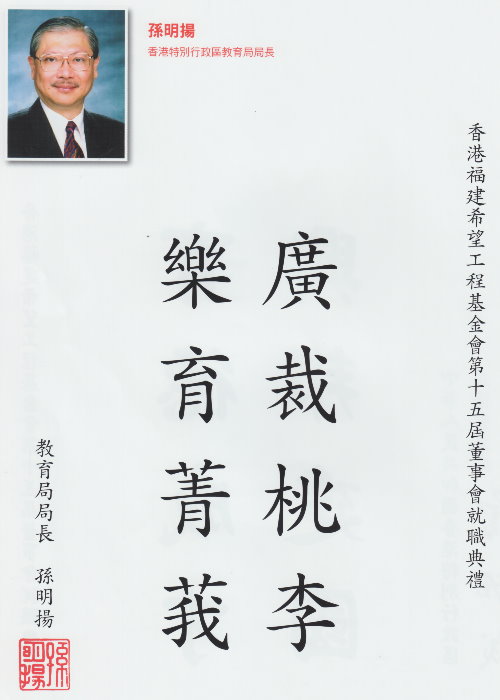 孫明揚
香港特別行政區教育局局長
香港福建希望工程基金會第十五屆董事會就職典禮
廣裁桃李
樂育菁莪
教育局局長 孫明揚
孫明揚